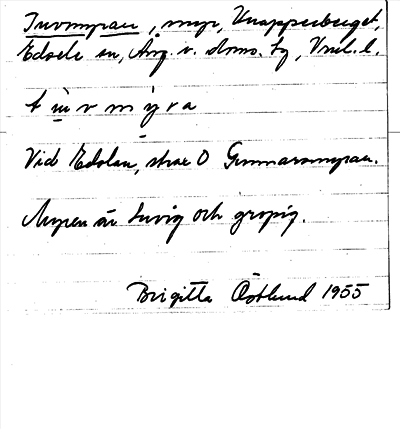 Tuvmyran, myr, Knappseberget,
Edsele sn, Ång. v. doms. tg, Vnl. l.
t ü v m y r a
Vid Edslan, strax O Gunnarsmyran.
Myren är tuvig och gropig.
Birgitta Östlund 1955